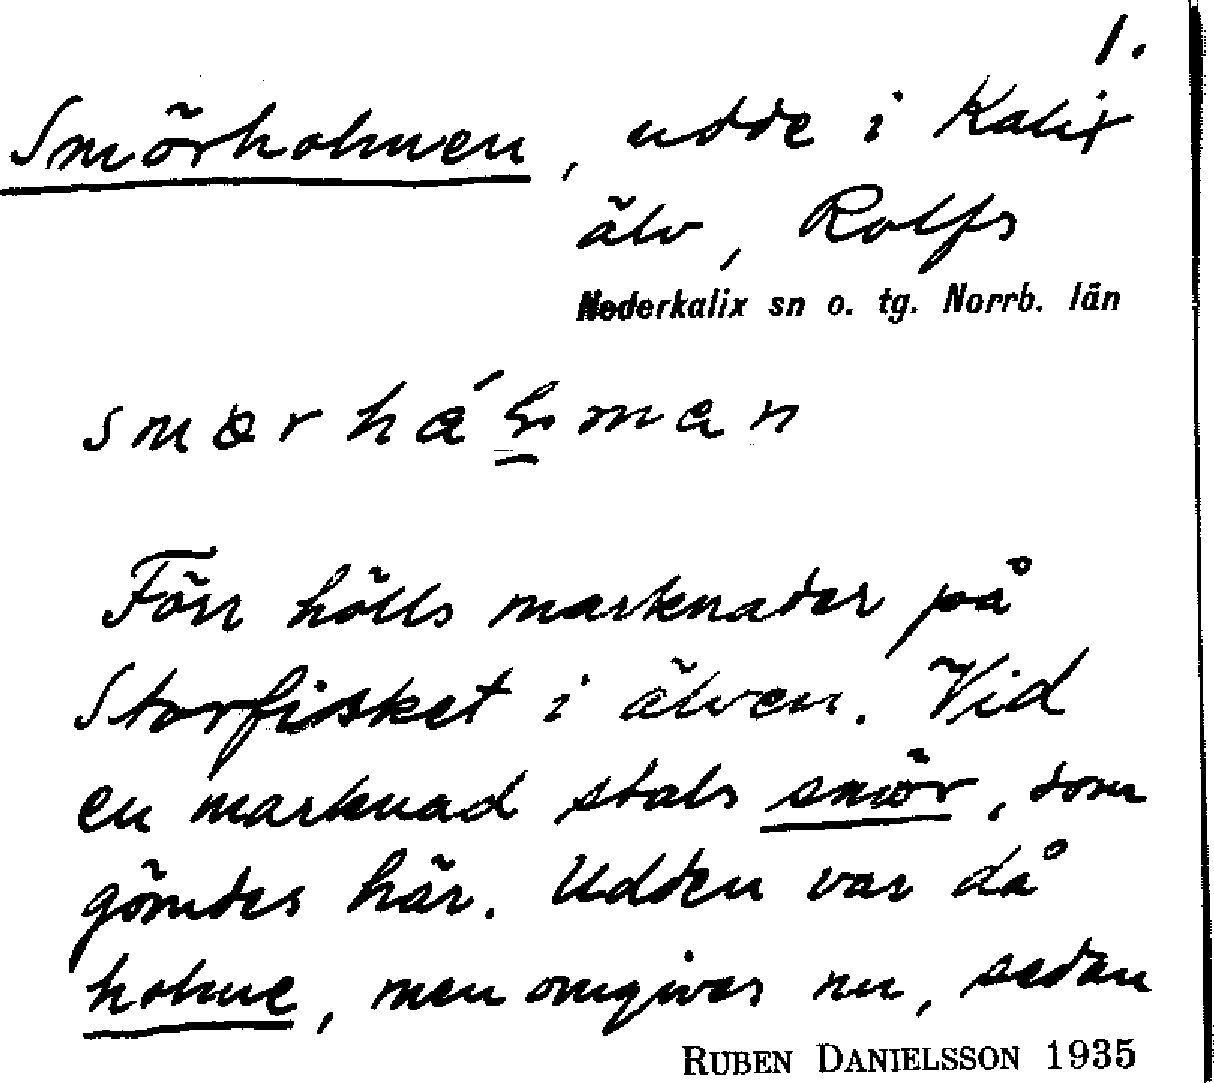 1.
Smörholmen, udde i Kalix
älv, Rolfs
Nederkalix sn o. tg. Norrb. län
Förr hölls marknader på
Storfisket i älven. Vid
en marknad stals smör, som
gömdes här. Udden var då
holme, men omgives nu, sedan
RUBEN DANIELSSON 1935